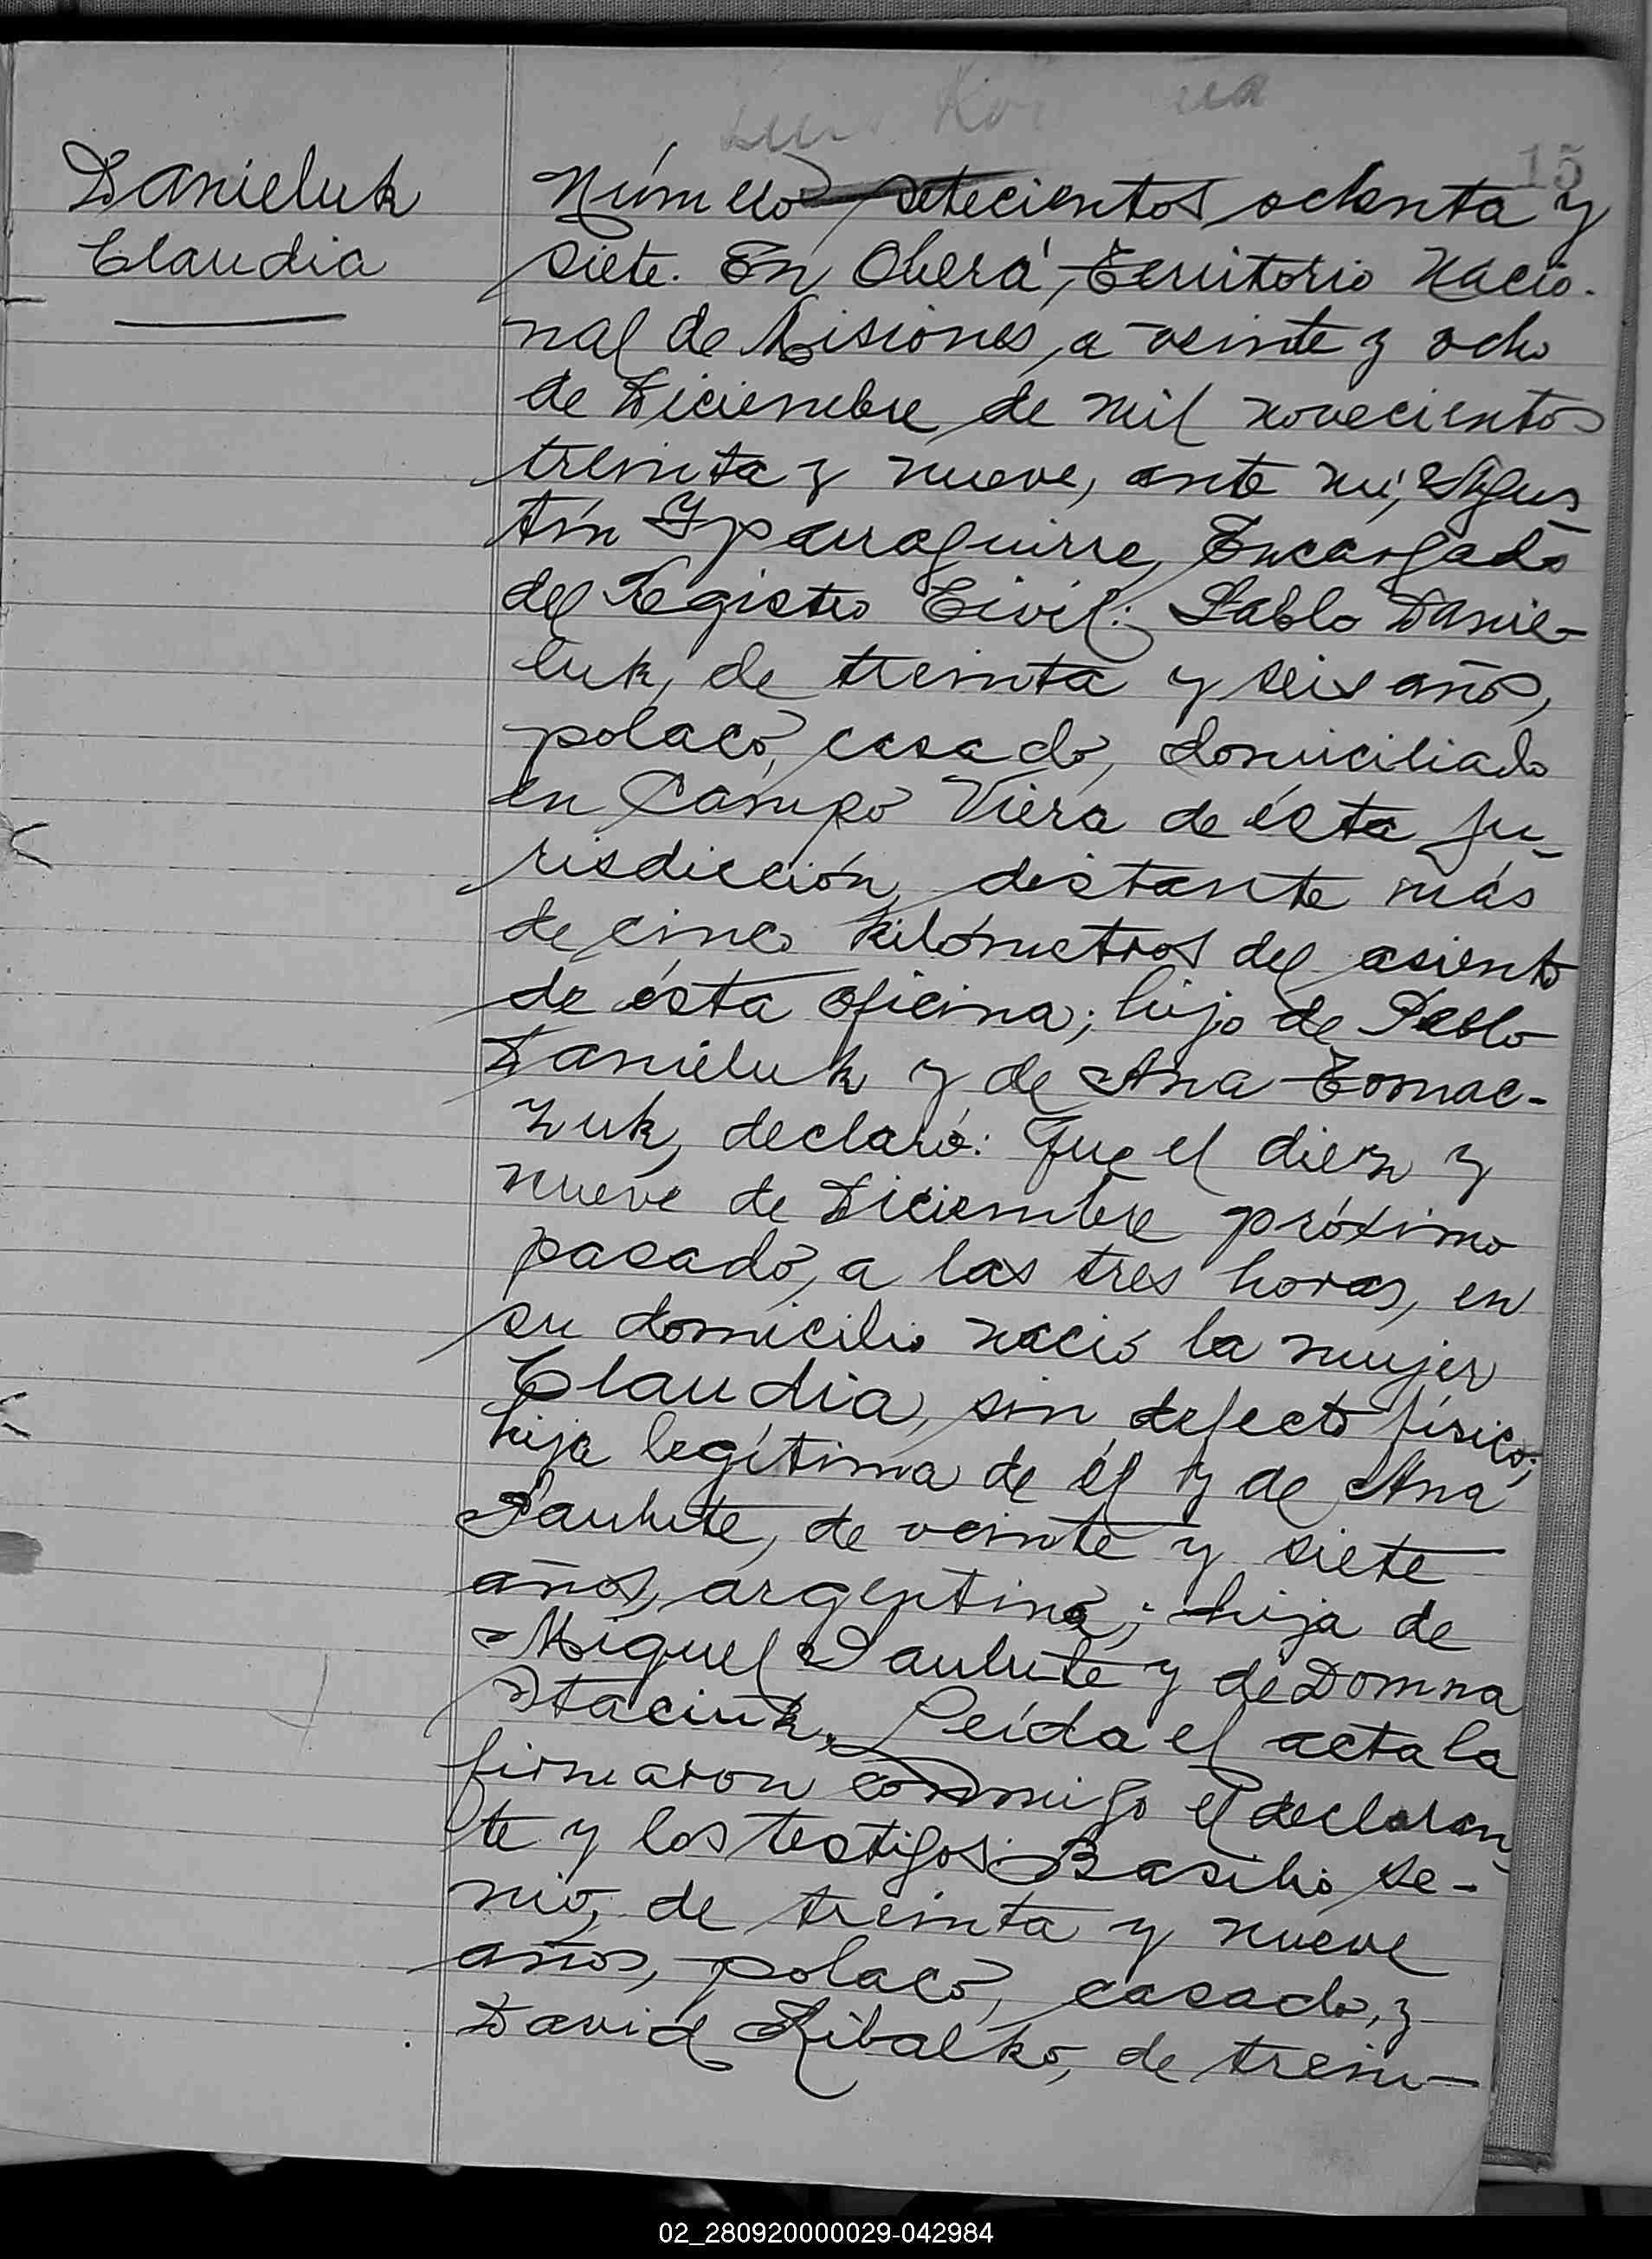 15
Danieluk
Claudia
Número setecientos ochenta y
siete. En Oberá, Territorio Nacio-
nal de Misiones, a veinte y ocho
de Diciembre de mil novecientos
treinta y nueve, ante mí, Agus-
tín Yparraguirre, Encargado
del Registro Civil: Pablo Danie-
luk, de treinta y seis años,
polaco, casado, domiciliado
en Campo Viera de ésta ju-
risdicción, distante más
de cinco kilómetros del asiento
de ésta oficina; hijo de Pablo
Danieluk y de Ana Tomac-
zuk, declaró: Que el diez y
nueve de Diciembre próximo
pasado, a las tres horas, en
su domicilio nació la mujer
Claudia, sin defecto físico;
hija legítima de él y de Ana
de veinte y siete
años, argentina; hija de
Miguel y de Domna
Staciuk. Leída el acta la
firmaron conmigo el declaran-
te y los testigos: Basilio Se-
nio, de treinta y nueve
años, polaco, casado, y
David Ribalko, de trein-
02_280920000029-042984